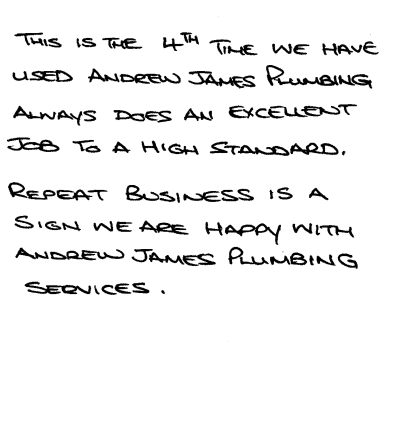 THIS IS THE 4TH TIME WE HAVE
USED ANDREW JAMES PLUMBING
ALWAYS DOES AN EXCELLENT
JOB TO A HIGH STANDARD.
REPEAT BUSINESS IS A
SIGN WE ARE HAPPY WITH
ANDREW JAMES PLUMBING
SERVICES.